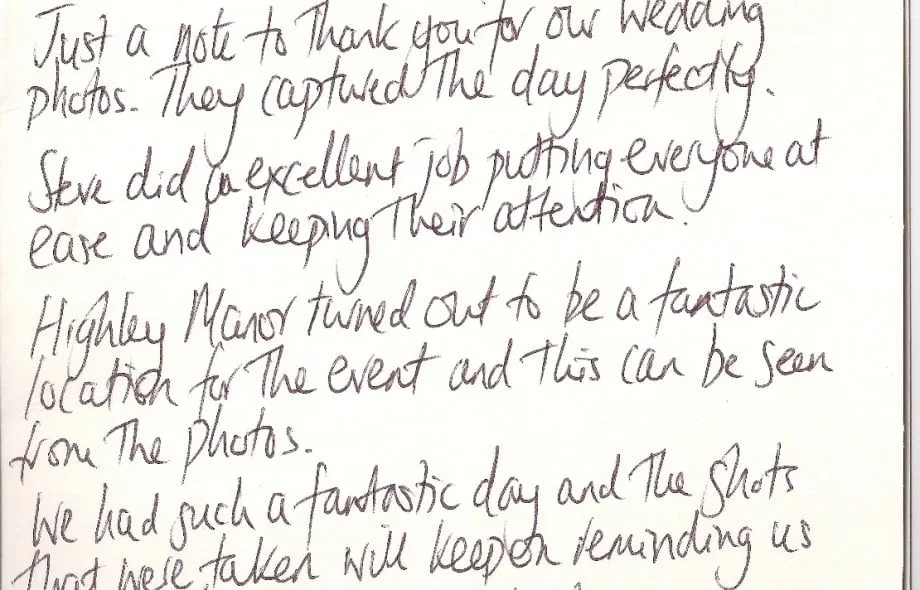 Just a note to Thank you for our wedding
photos. They captured The day perfectly.
Steve did an excellent job putting everyone at
ease and keeping Their attention.
Highley Manor turned out to be a fantastic
location for The event and this can be seen
from The photos.
We had such a fantastic day and The shots
that were taken will keep on reminding us